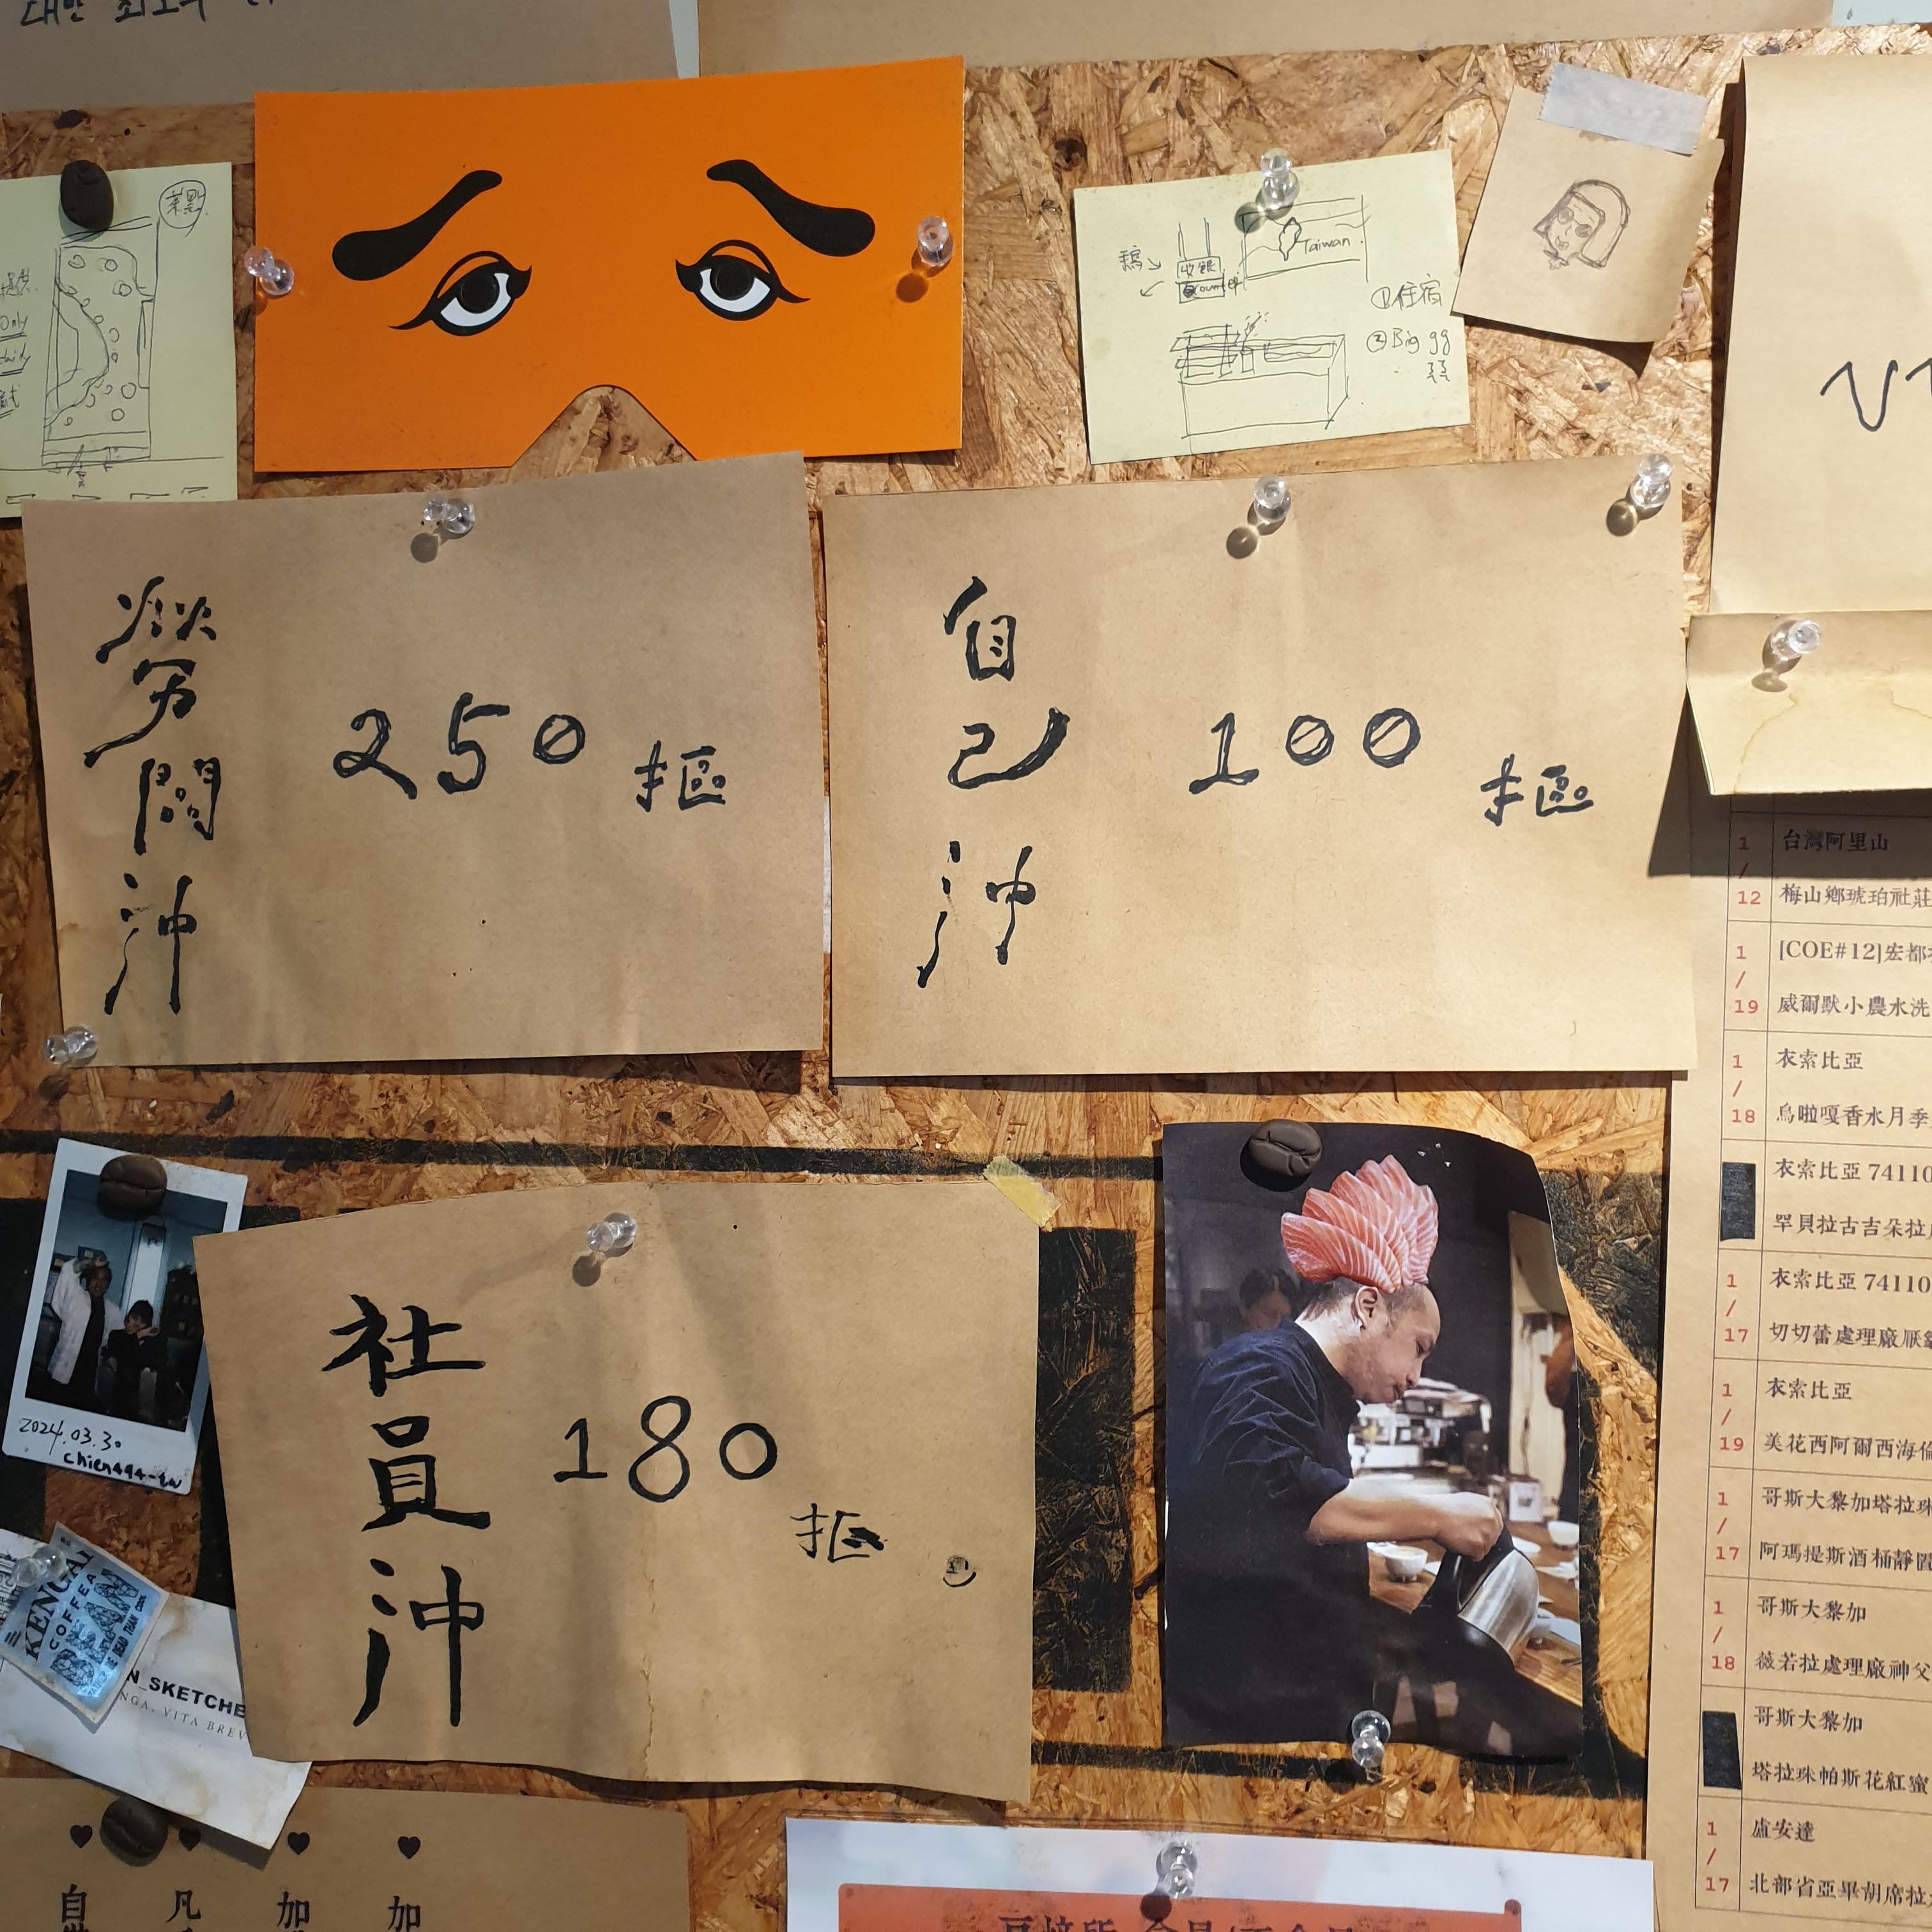 대만 최고의
菜單
Only
Taiwan.
收銀
Counter
①住宿
②Big gg
勞
闆
沖
250 抠
自
己
沖
100 抠
社
員
沖
180 抠
2024.03.30
1/12
台灣阿里山
梅山鄉琥珀社莊
1/19
[COE#12]宏都
威爾默小農水洗
1/18
衣索比亞
烏啦嘎香水月季
衣索比亞 74110
罕貝拉古吉朵拉
1/17
衣索比亞 74110
切切蕾處理廠厭
1/19
衣索比亞
美花西阿爾西海倫
1/17
哥斯大黎加塔拉珠
阿瑪提斯酒桶靜置
1/18
哥斯大黎加
薇若拉處理廠神父
哥斯大黎加
塔拉珠帕斯花紅蜜
1/17
盧安達
北部省亞畢胡席拉
KENGAI
COFFEA
BEAN
N_SKETCHE
NGA, VITA BREV
♥ ♥ ♥ ♥
自
凡
加
加